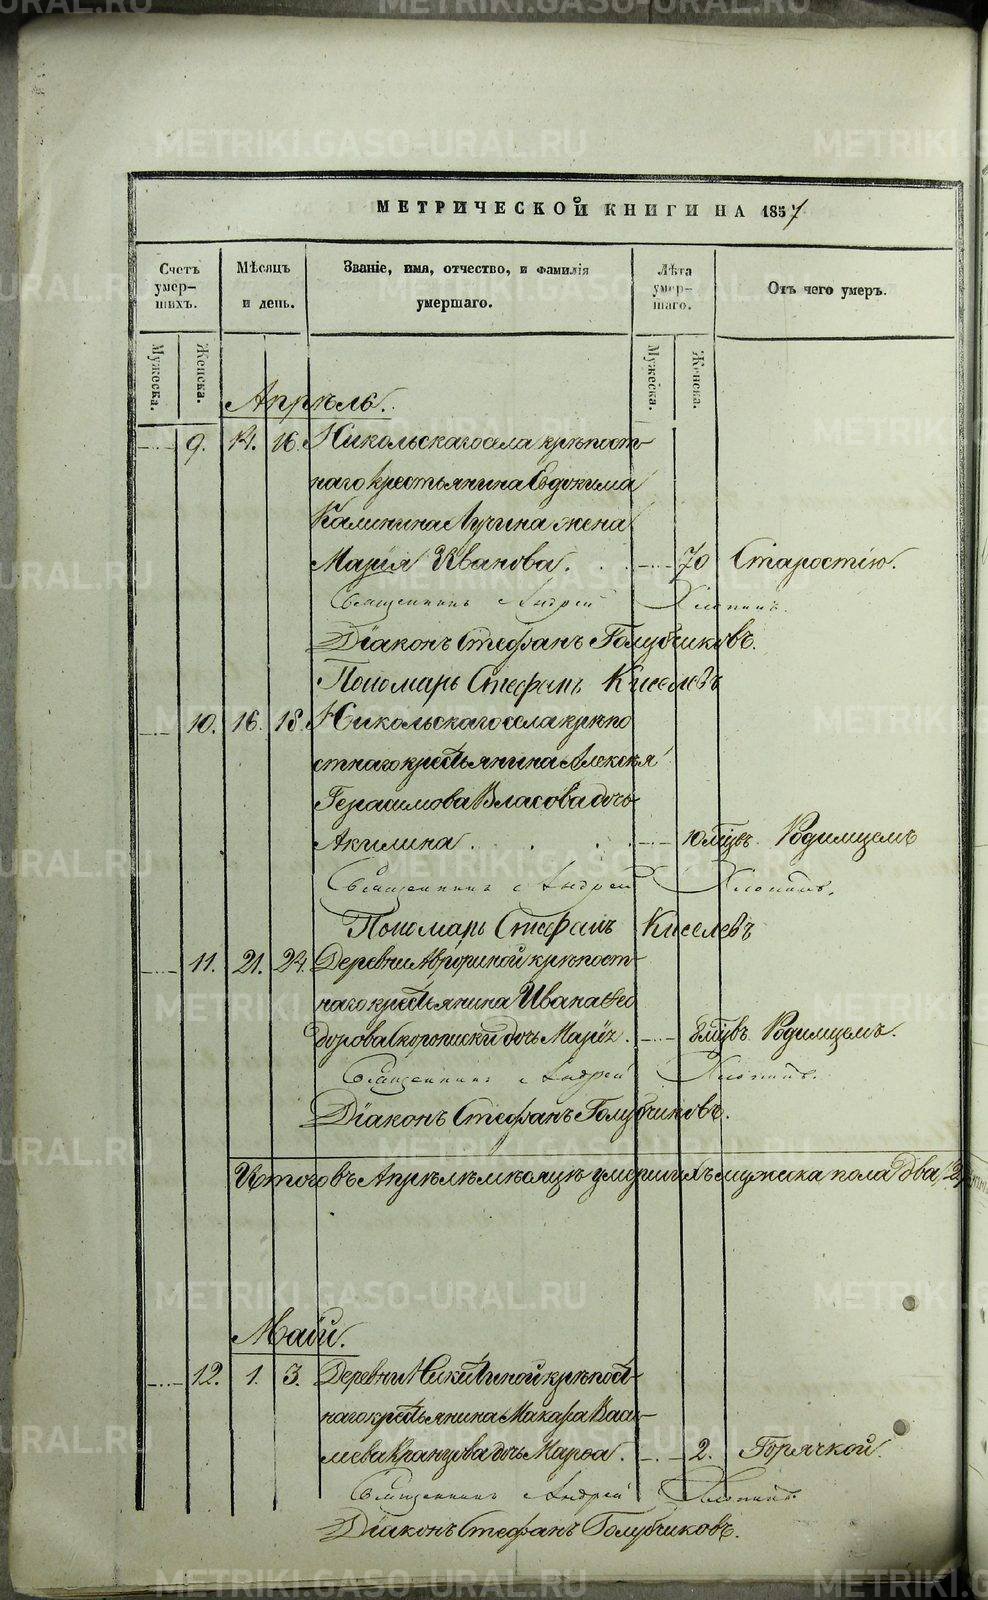 METRIKI.GASO-URAL.RU
МЕТРИЧЕСКОЙ КНИГИ НА 1857
Счетъ умер-шихъ.
Мѣсяцъ и день.
Званіе, имя, отчество, и фамилія умершаго.
Лѣта умер-шаго.
Отъ чего умеръ.
Мужеска. Женска. Мужеска. Женска.
Апрѣль.
9. 14. 16. Никольскаго села крѣпост-
наго крестьянина Евдокима
Калинина Лучина жена
Марія Иванова. 70 Старостію.
Священникъ Андрей Хлопинъ.
Діаконъ Стефанъ Голубчиковъ.
Пономарь Стефанъ Киселевъ
10. 16. 18. Никольскаго села крѣпо
стнаго крестьянина Алексѣя
Герасимова Власова дочь
Акилина . . . . 10 мцвъ. Родимцемъ
Священникъ Андрей Хлопинъ.
Пономарь Стефанъ Киселевъ
11. 21. 24. Деревни Аврориной крѣпост-
наго крестьянина Ивана Фео
дорова дочь Марія. 8 мцвъ Родимцемъ.
Священникъ Андрей Хлопинъ.
Діаконъ Стефанъ Голубчиковъ.
Итого въ Апрѣлѣ мѣсяцѣ умершихъ мужеска пола два, 2,
Маій.
12. 1. 3. Деревни Никитиной крѣпост-
наго крестьянина Макара Васи-
льева дочь Марфа. 2. Горячкой.
Священникъ Андрей Хлопинъ.
Діаконъ Стефанъ Голубчиковъ.